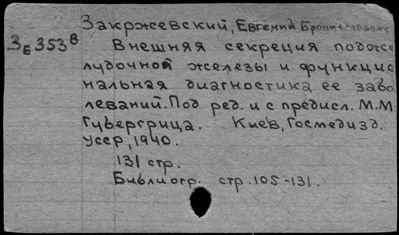 Закржевский, Евгений Брониславович
3Б353в Внешняя секреция поджe
лудочной железы и функцио
нальная диагностика ее забо
леваний. Под ред. и с предисл. М.М.
Губергрица. Киев, Госмедизд.
УССР, 1940.
131 стр.
Библиогр. стр. 105-131.